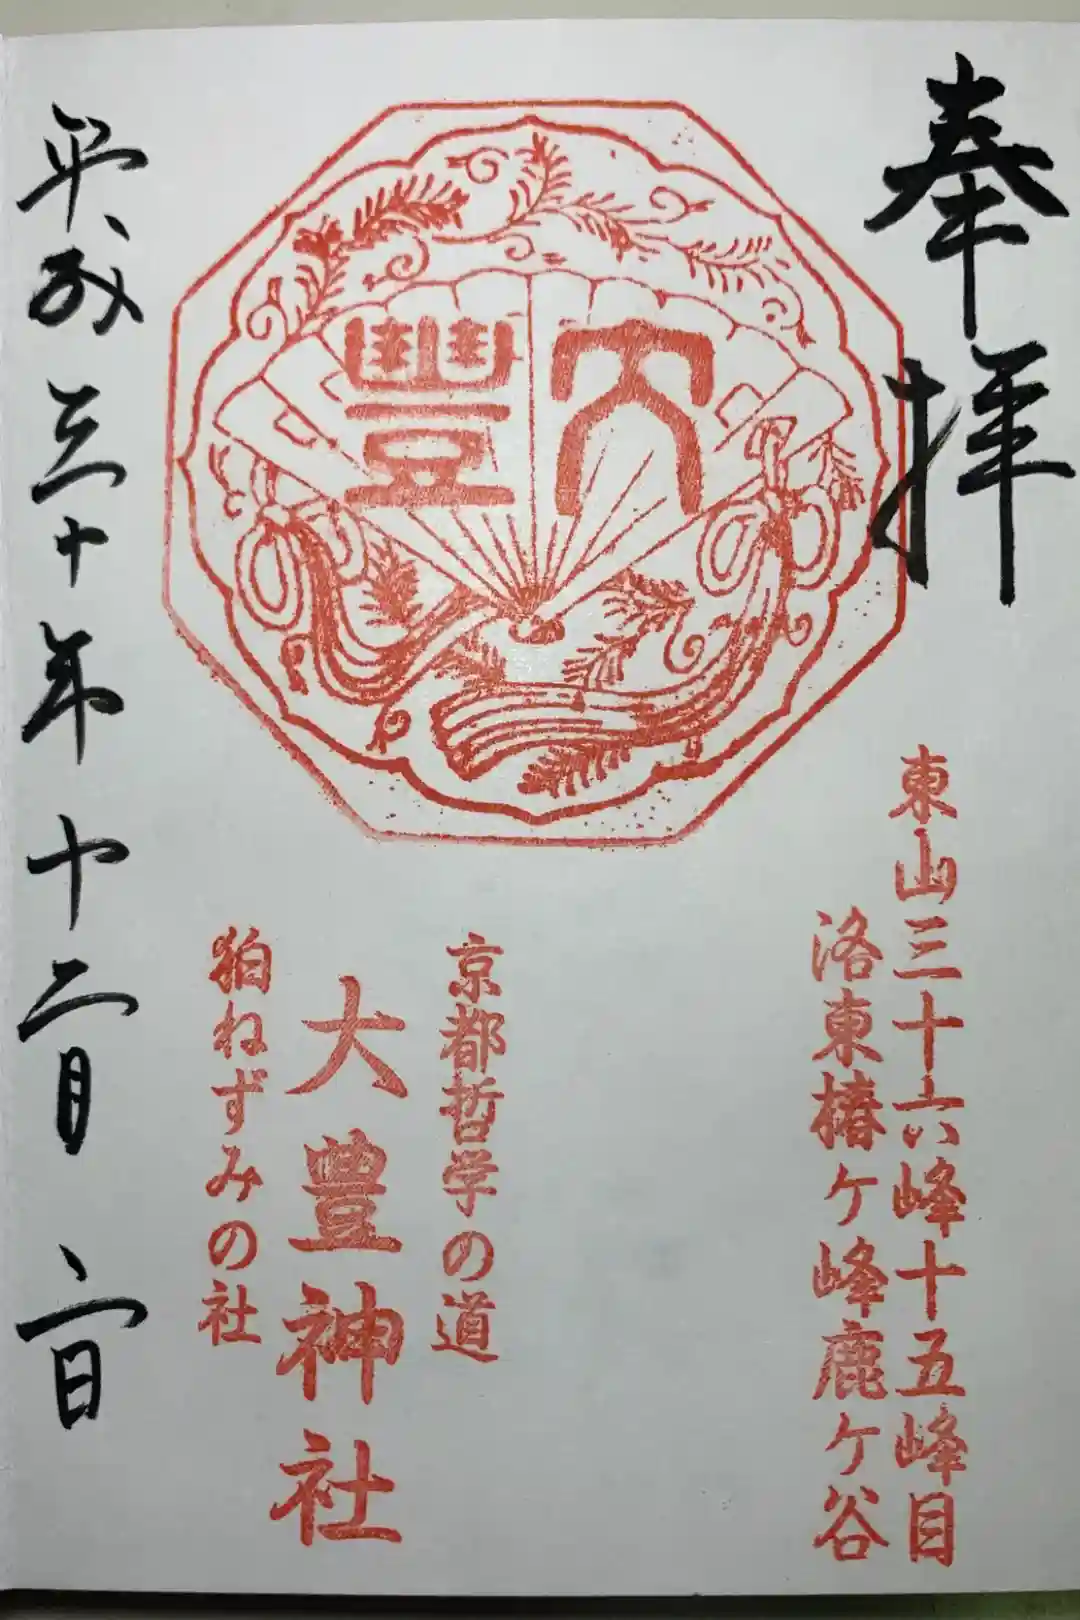 奉拝
東山三十六峰十五峰目
洛東椿ケ峰鹿ケ谷
大豊
京都哲学の道
大豊神社
狛ねずみの社
平成三十年十二月 日